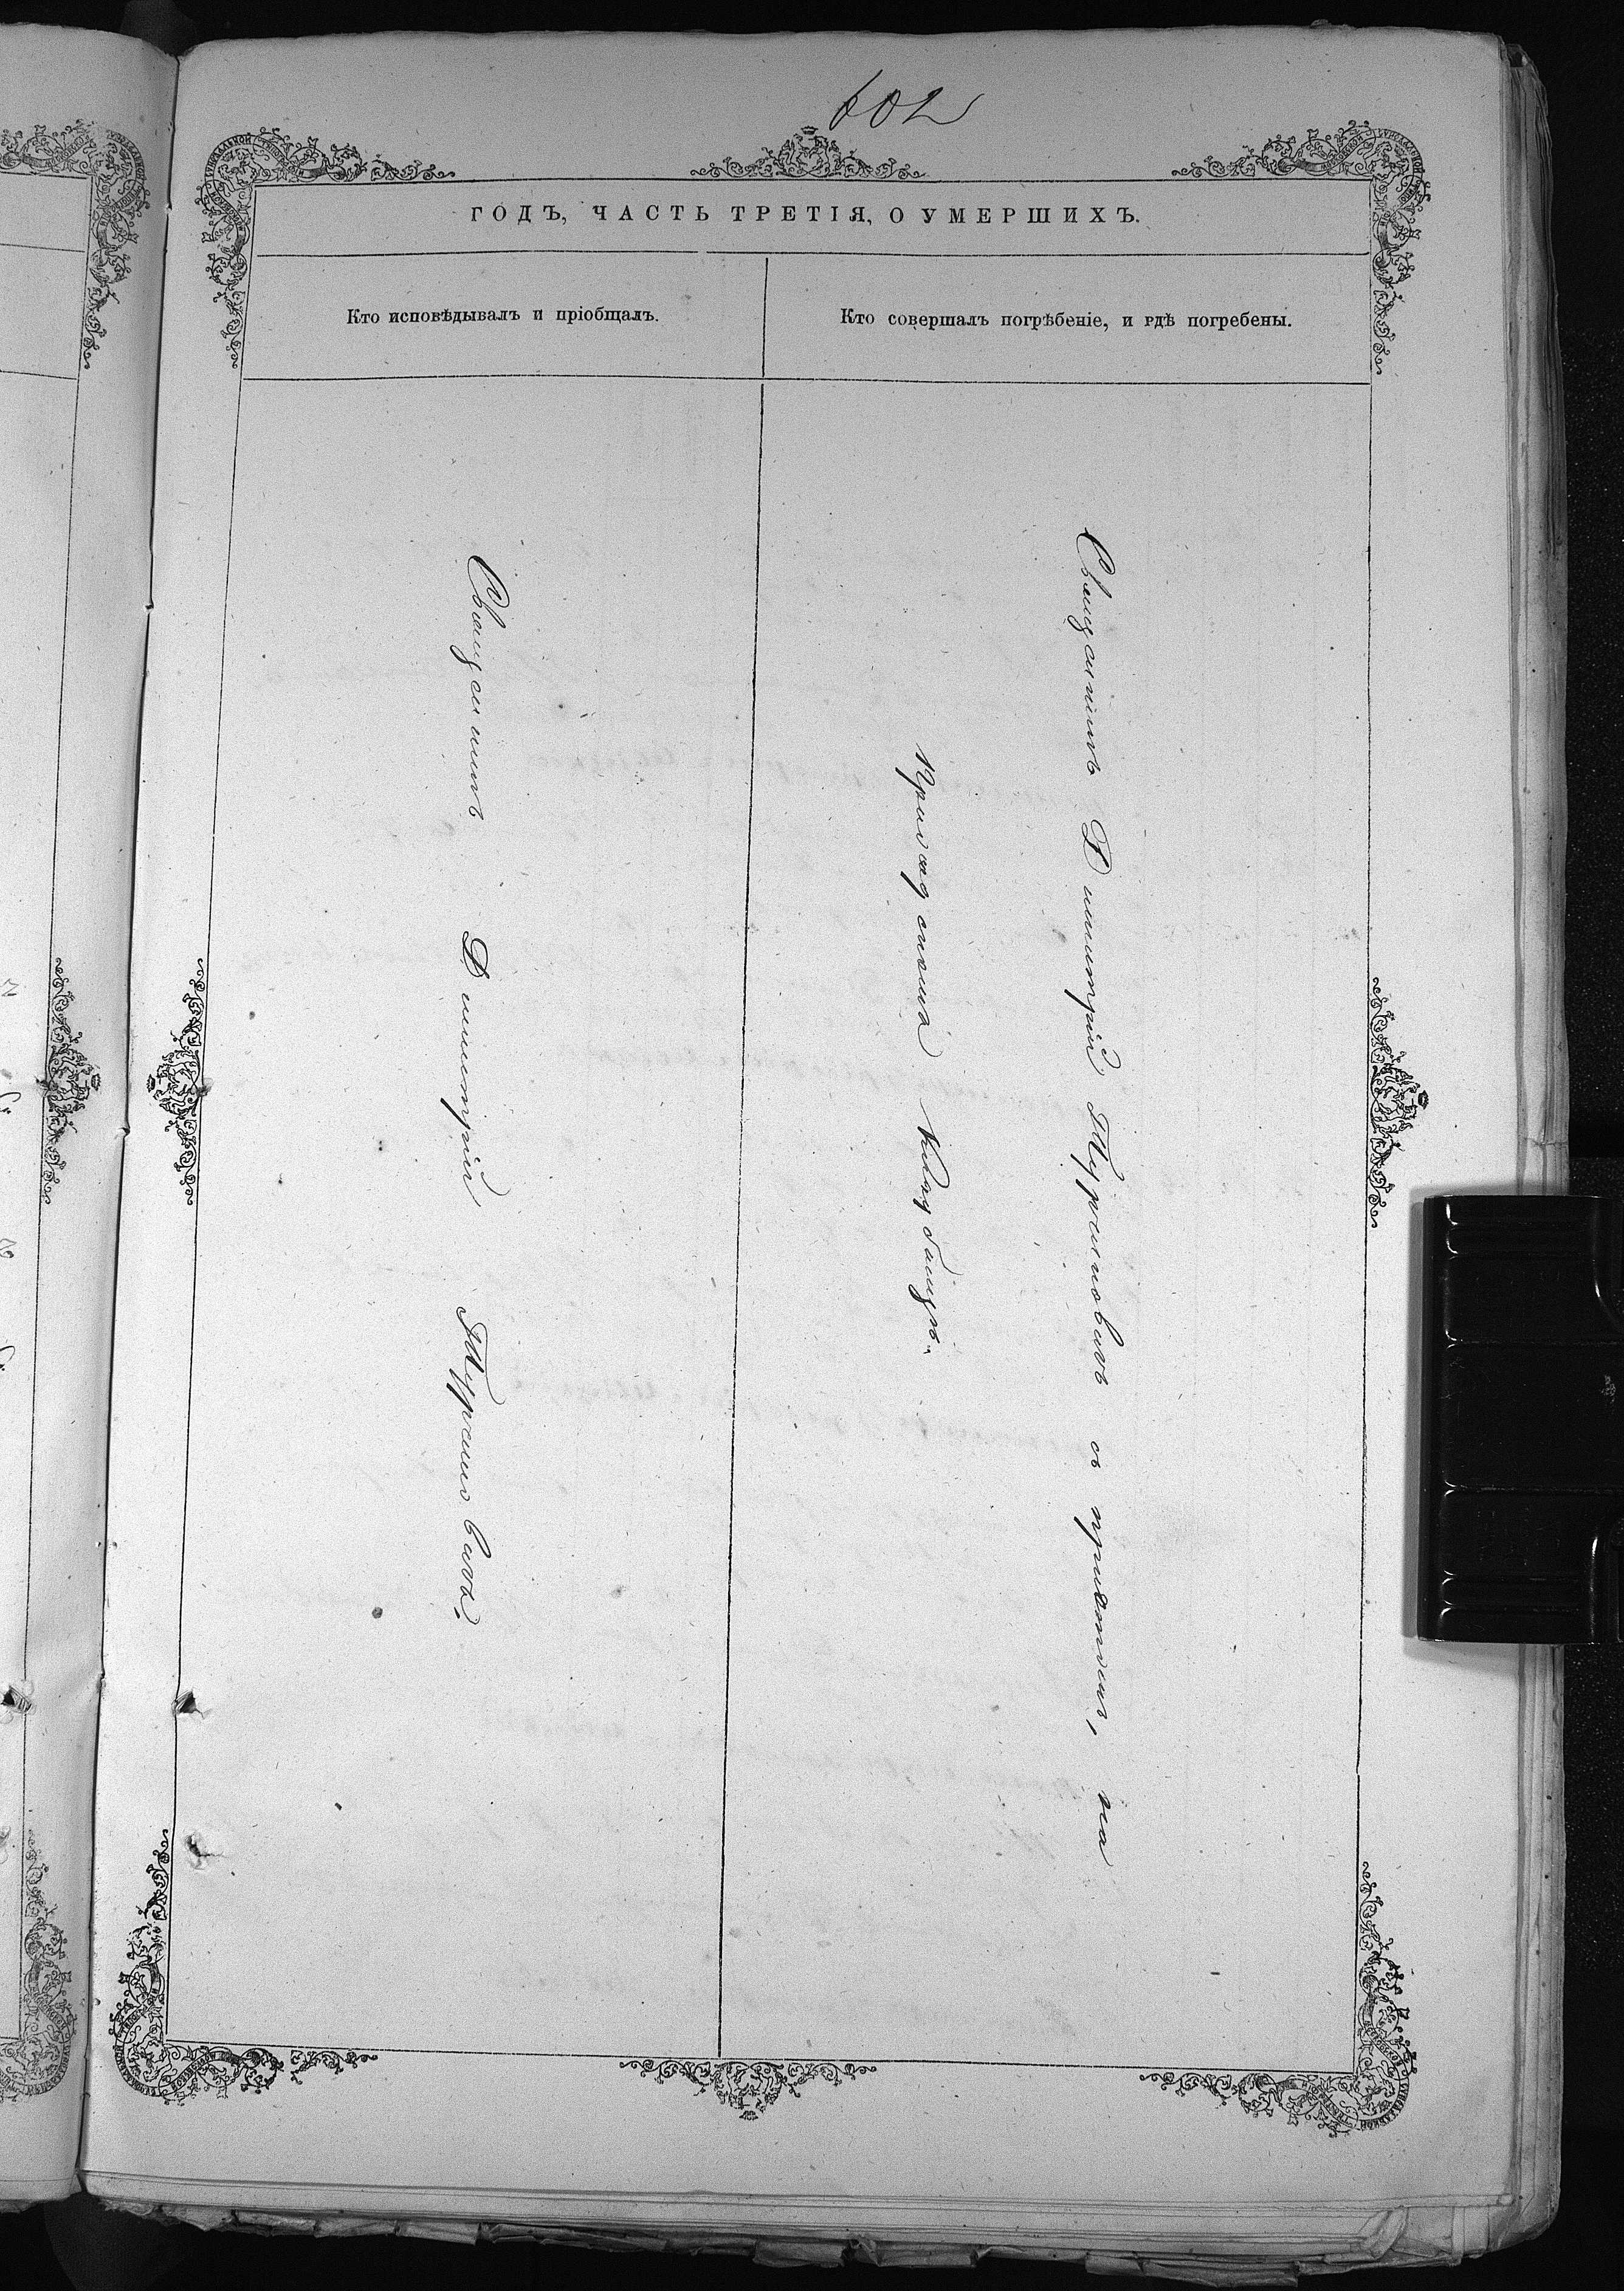 602
ГОДЪ, ЧАСТЬ ТРЕТІЯ, О УМЕРШИХЪ.
Кто исповѣдывалъ и пріобщалъ.
Кто совершалъ погрѣбеніе, и гдѣ погребены.
Священникъ Димитрій
Священникъ Димитрій съ причтомъ, на
Приходскомъ Кладбищѣ.